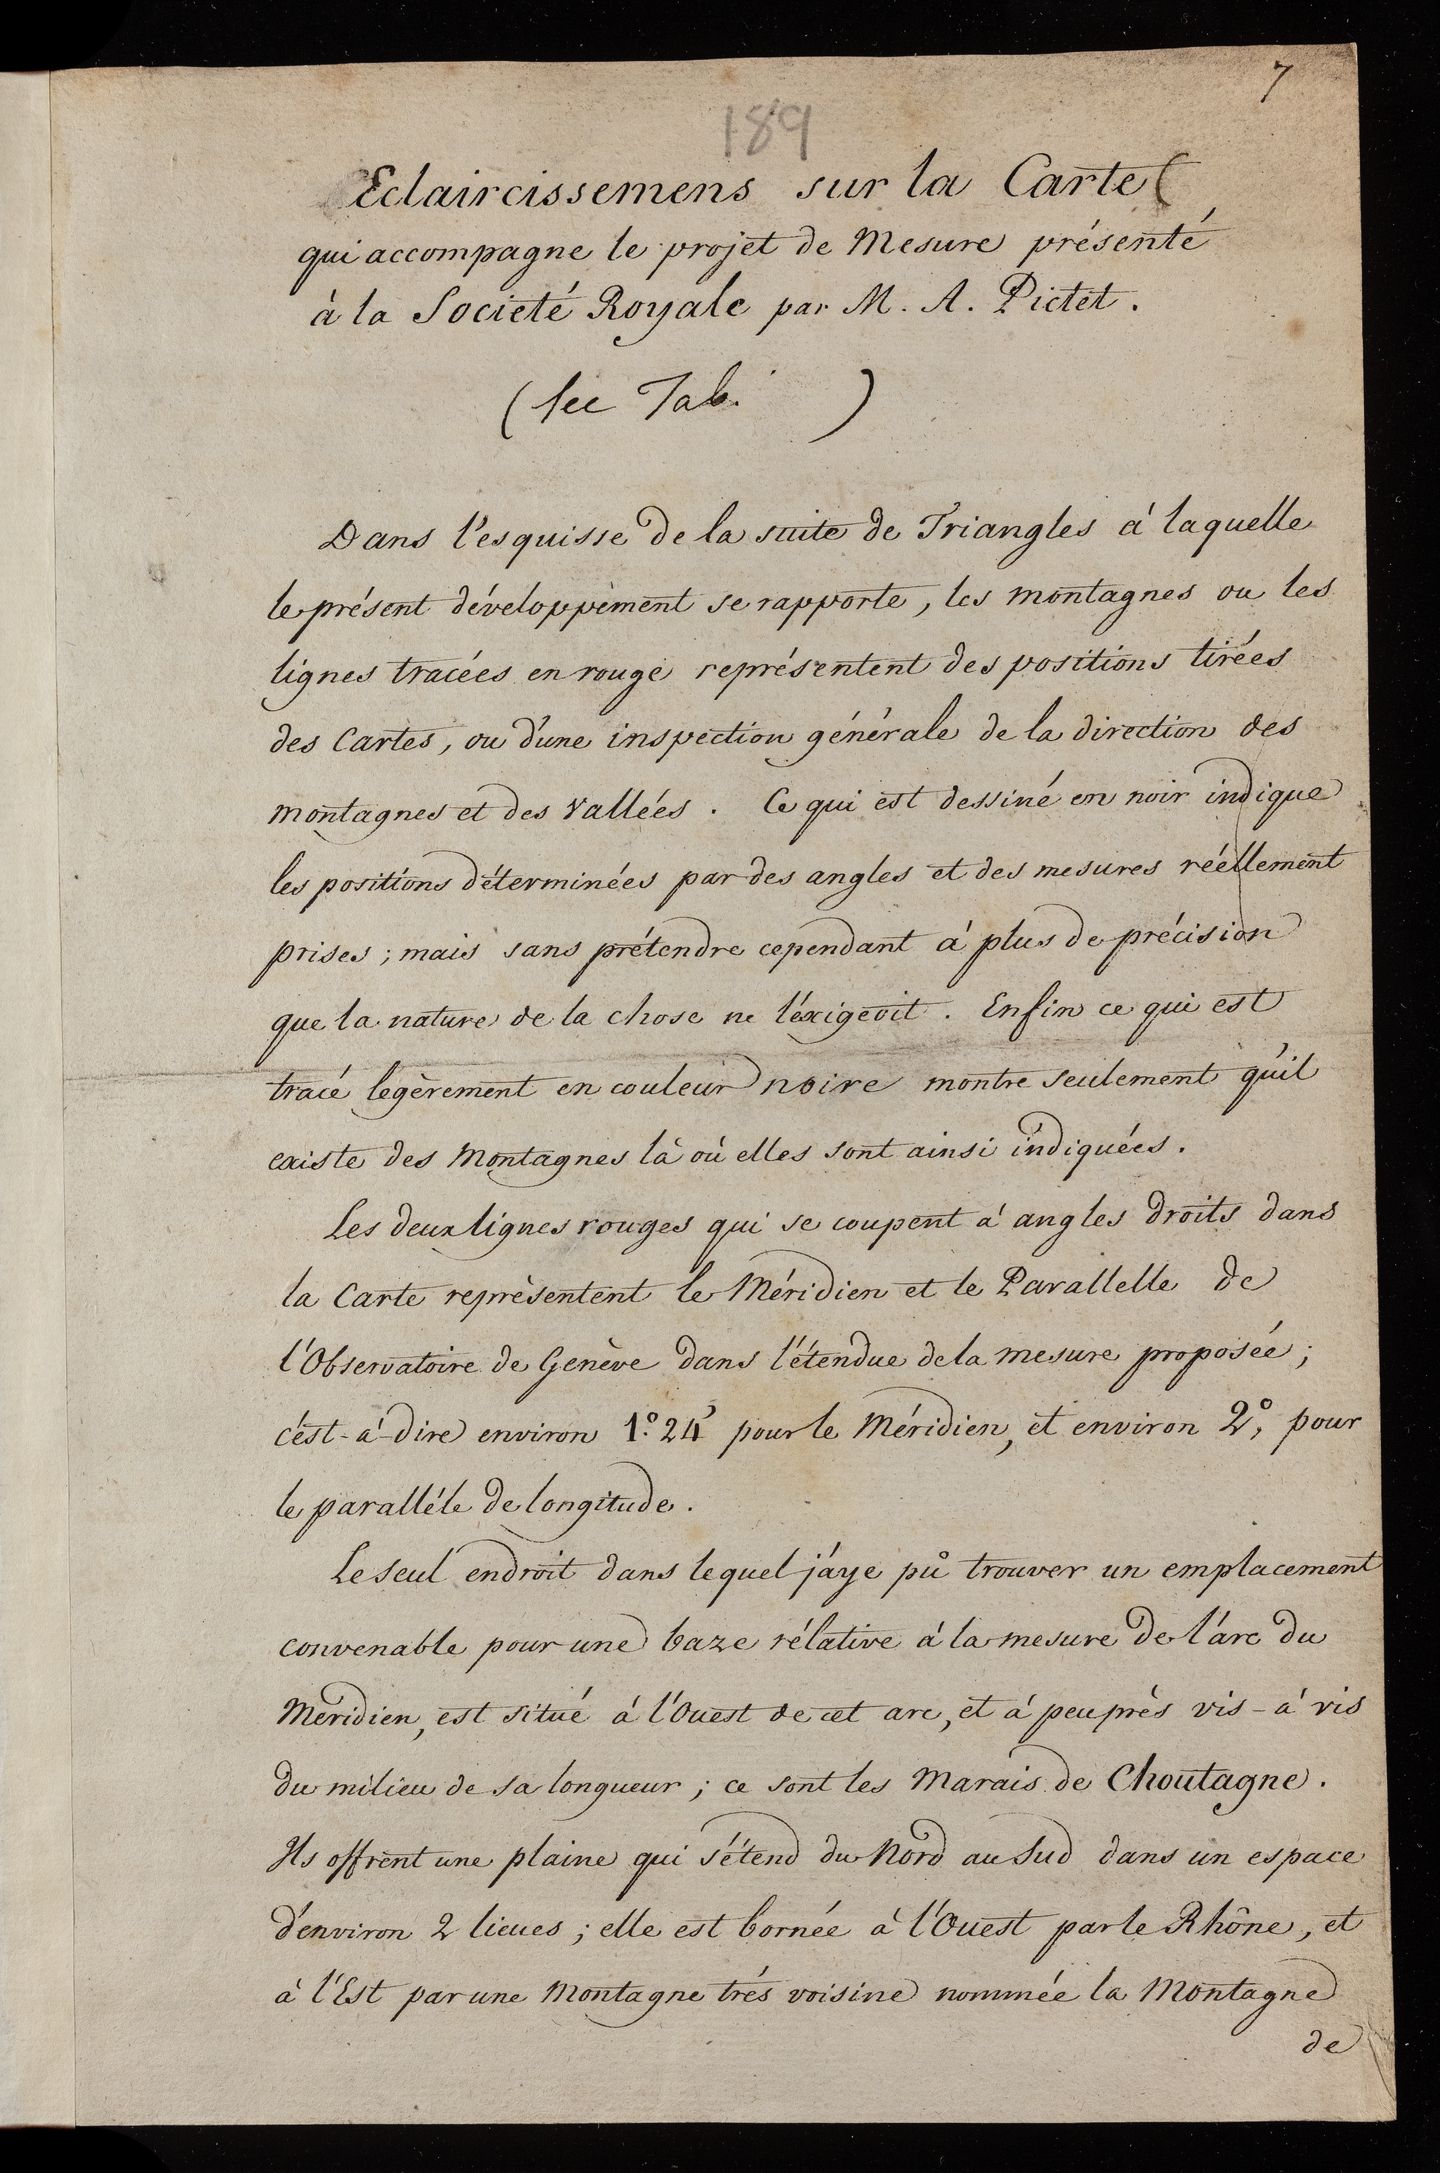 7
189
Eclaircissemens sur la Carte
qui accompagne le projet de Mesure présenté
à la Societé Royale par M. A. Pictet.
(see Tab. )
Dans l'esquisse de la suite de Triangles à laquelle
le présent développement se rapporte, les montagnes ou les
lignes tracées en rouge représentent des positions tirées
des Cartes, ou d'une inspection générale de la direction des
montagnes et des vallées. Ce qui est dessiné en noir indique
les positions déterminées par des angles et des mesures réellement
prises; mais sans prétendre cependant à plus de précision
que la nature de la chose ne l'éxigeoit. Enfin ce qui est
tracé legèrement en couleur noire montre seulement qu'il
existe des Montagnes là où elles sont ainsi indiquées.
Les deux lignes rouges qui se coupent à angles droits dans
la Carte représentent le Méridien et le Parallelle de
l'Observatoire de Genève dans l'étendue de la mesure proposée;
c'ést-à-dire environ 1°. 24' pour le Méridien, et environ 2°, pour
le paralléle de longitude.
Le seul endroit dans lequel j'aye pû trouver un emplacement
convenable pour une baze rélative à la mesure de l'arc du
Méridien, est situé à l'Ouest de cet arc, et à peu près vis-à vis
du milieu de sa longueur; ce sont les Marais de Choutagne.
Ils offrent une plaine qui s'étend du Nord au Sud dans un espace
d'environ 2 lieues; elle est bornée à l'Ouest par le Rhône, et
à l'Est par une Montagne trés voisine nommée la Montagne
de